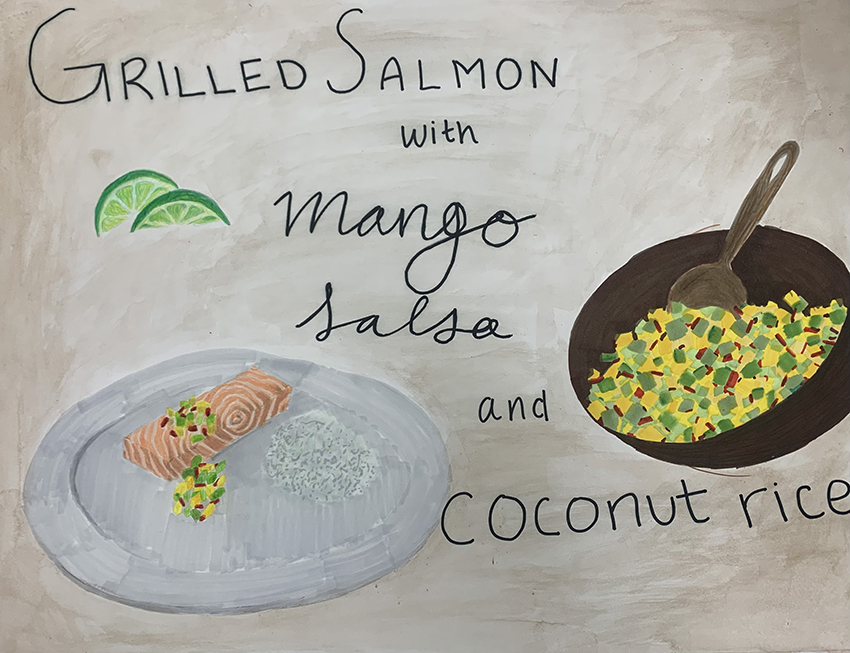 GRILLED SALMON
with
mango
salsa
and
coconut rice